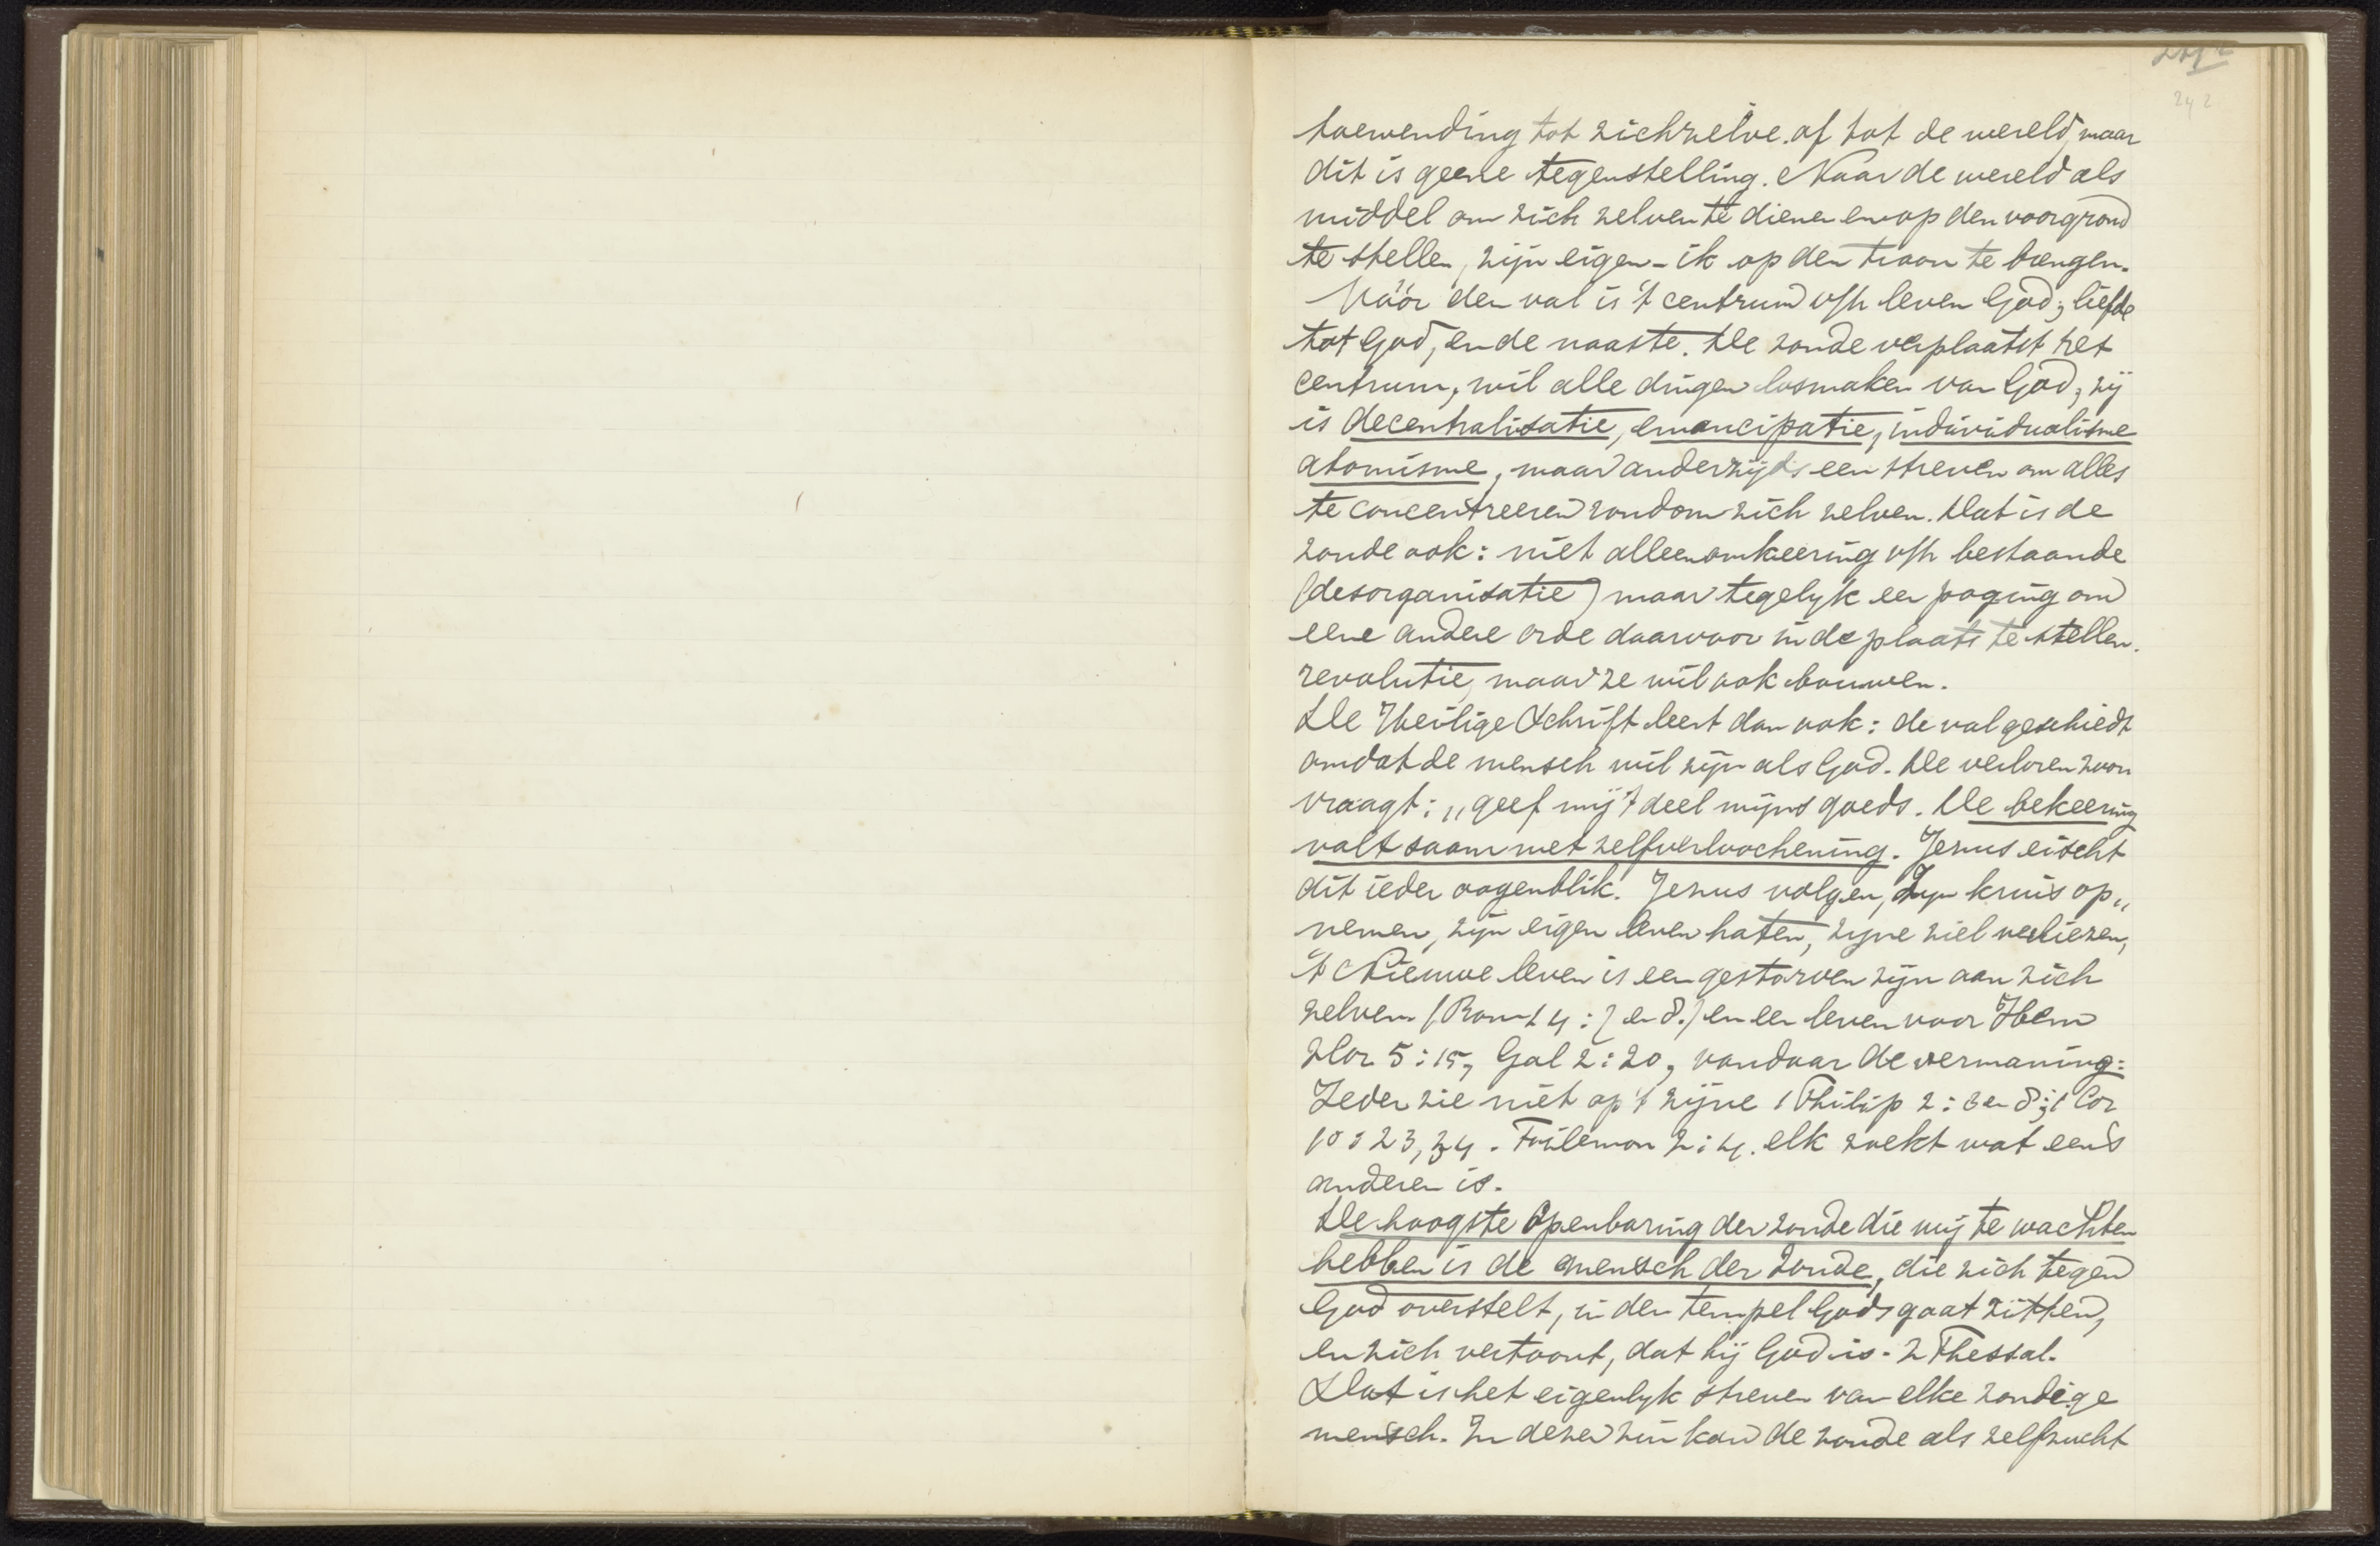 242
toewending tot zichzelve of tot de wereld, maar
dit is geene tegenstelling. Naar de wereld als
middel om zich zelven te dienen en op den voorgrond
te stellen, zijn eigen-ik op den troon te brengen.
Vóór den val is 't centrum v/h leven God; liefde
tot God, en de naaste. De zonde verplaatst het
centrum, wil alle dingen losmaken van God; zij
is decentralisatie, emancipatie, individualisme
atomisme, maar anderzijds een streven om alles
te concentreeren rondom zich zelven. Dat is de
zonde ook: niet alleen omkeering v/h bestaande
(desorganisatie) maar tegelyk een poging om
eene andere orde daarvoor in de plaats te stellen.
revolutie, maar ze wil ook bouwen.
De Heilige Schrift leert dan ook: de val geschiedt
omdat de mensch wil zijn als God. De verloren zoon
vraagt: „geef mij 't deel mijns goeds. De bekeering
valt saam met zelfverloochening. Jezus eischt
dit ieder oogenblik. Jezus volgen, Zyn kruis op„
nemen, zijn eigen leven haten, zyne ziel verliezen,
't Nieuwe leven is een gestorven zijn aan zich
zelven (Rom 14: 7 en 8.) en een leven voor Hem
2Cor 5:15, Gal 2:20, vandaar de vermaning:
Ieder zie niet op 't zijne (Philip 2: 3 en 8; 1 Cor
10: 23, 34. Filemon 2:4. elk zoekt wat eens
anderen is.
De hoogste Openbaring der zonde die wij te wachten
hebben is de mensch der Zonde, die zich tegen
God overstelt, in den tempel Gods gaat zitten,
en zich vertoont, dat hij God is. 2 Thessal.
Dat is het eigenlyk streven van elke zondige
mensch. In dezen zin kan de zonde als zelfzucht